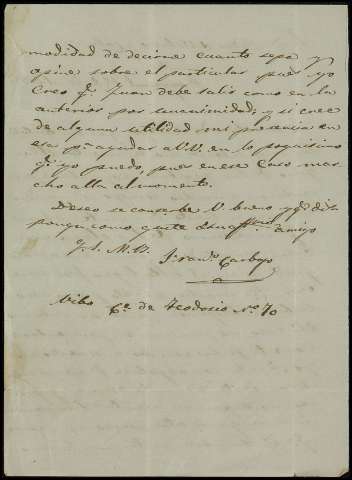 modidad de decirme cuanto sepa y
opine sobre el particular pues yo
creo qe. Juan debe salir como en la
anterior por unanimidad; y si cree
de alguna utilidad mi presencia en
esa pa. ayudar a V.V. en lo poquisimo
qe. yo puedo, pues en ese caso mar
cho alla al momento.
Deseo se conserbe V. bueno y qe. dis
ponga como guste de su affmo. amigo
q. S. M. B.
Franco. Carbajo
Vibo Ce. de Teodosio No. 70